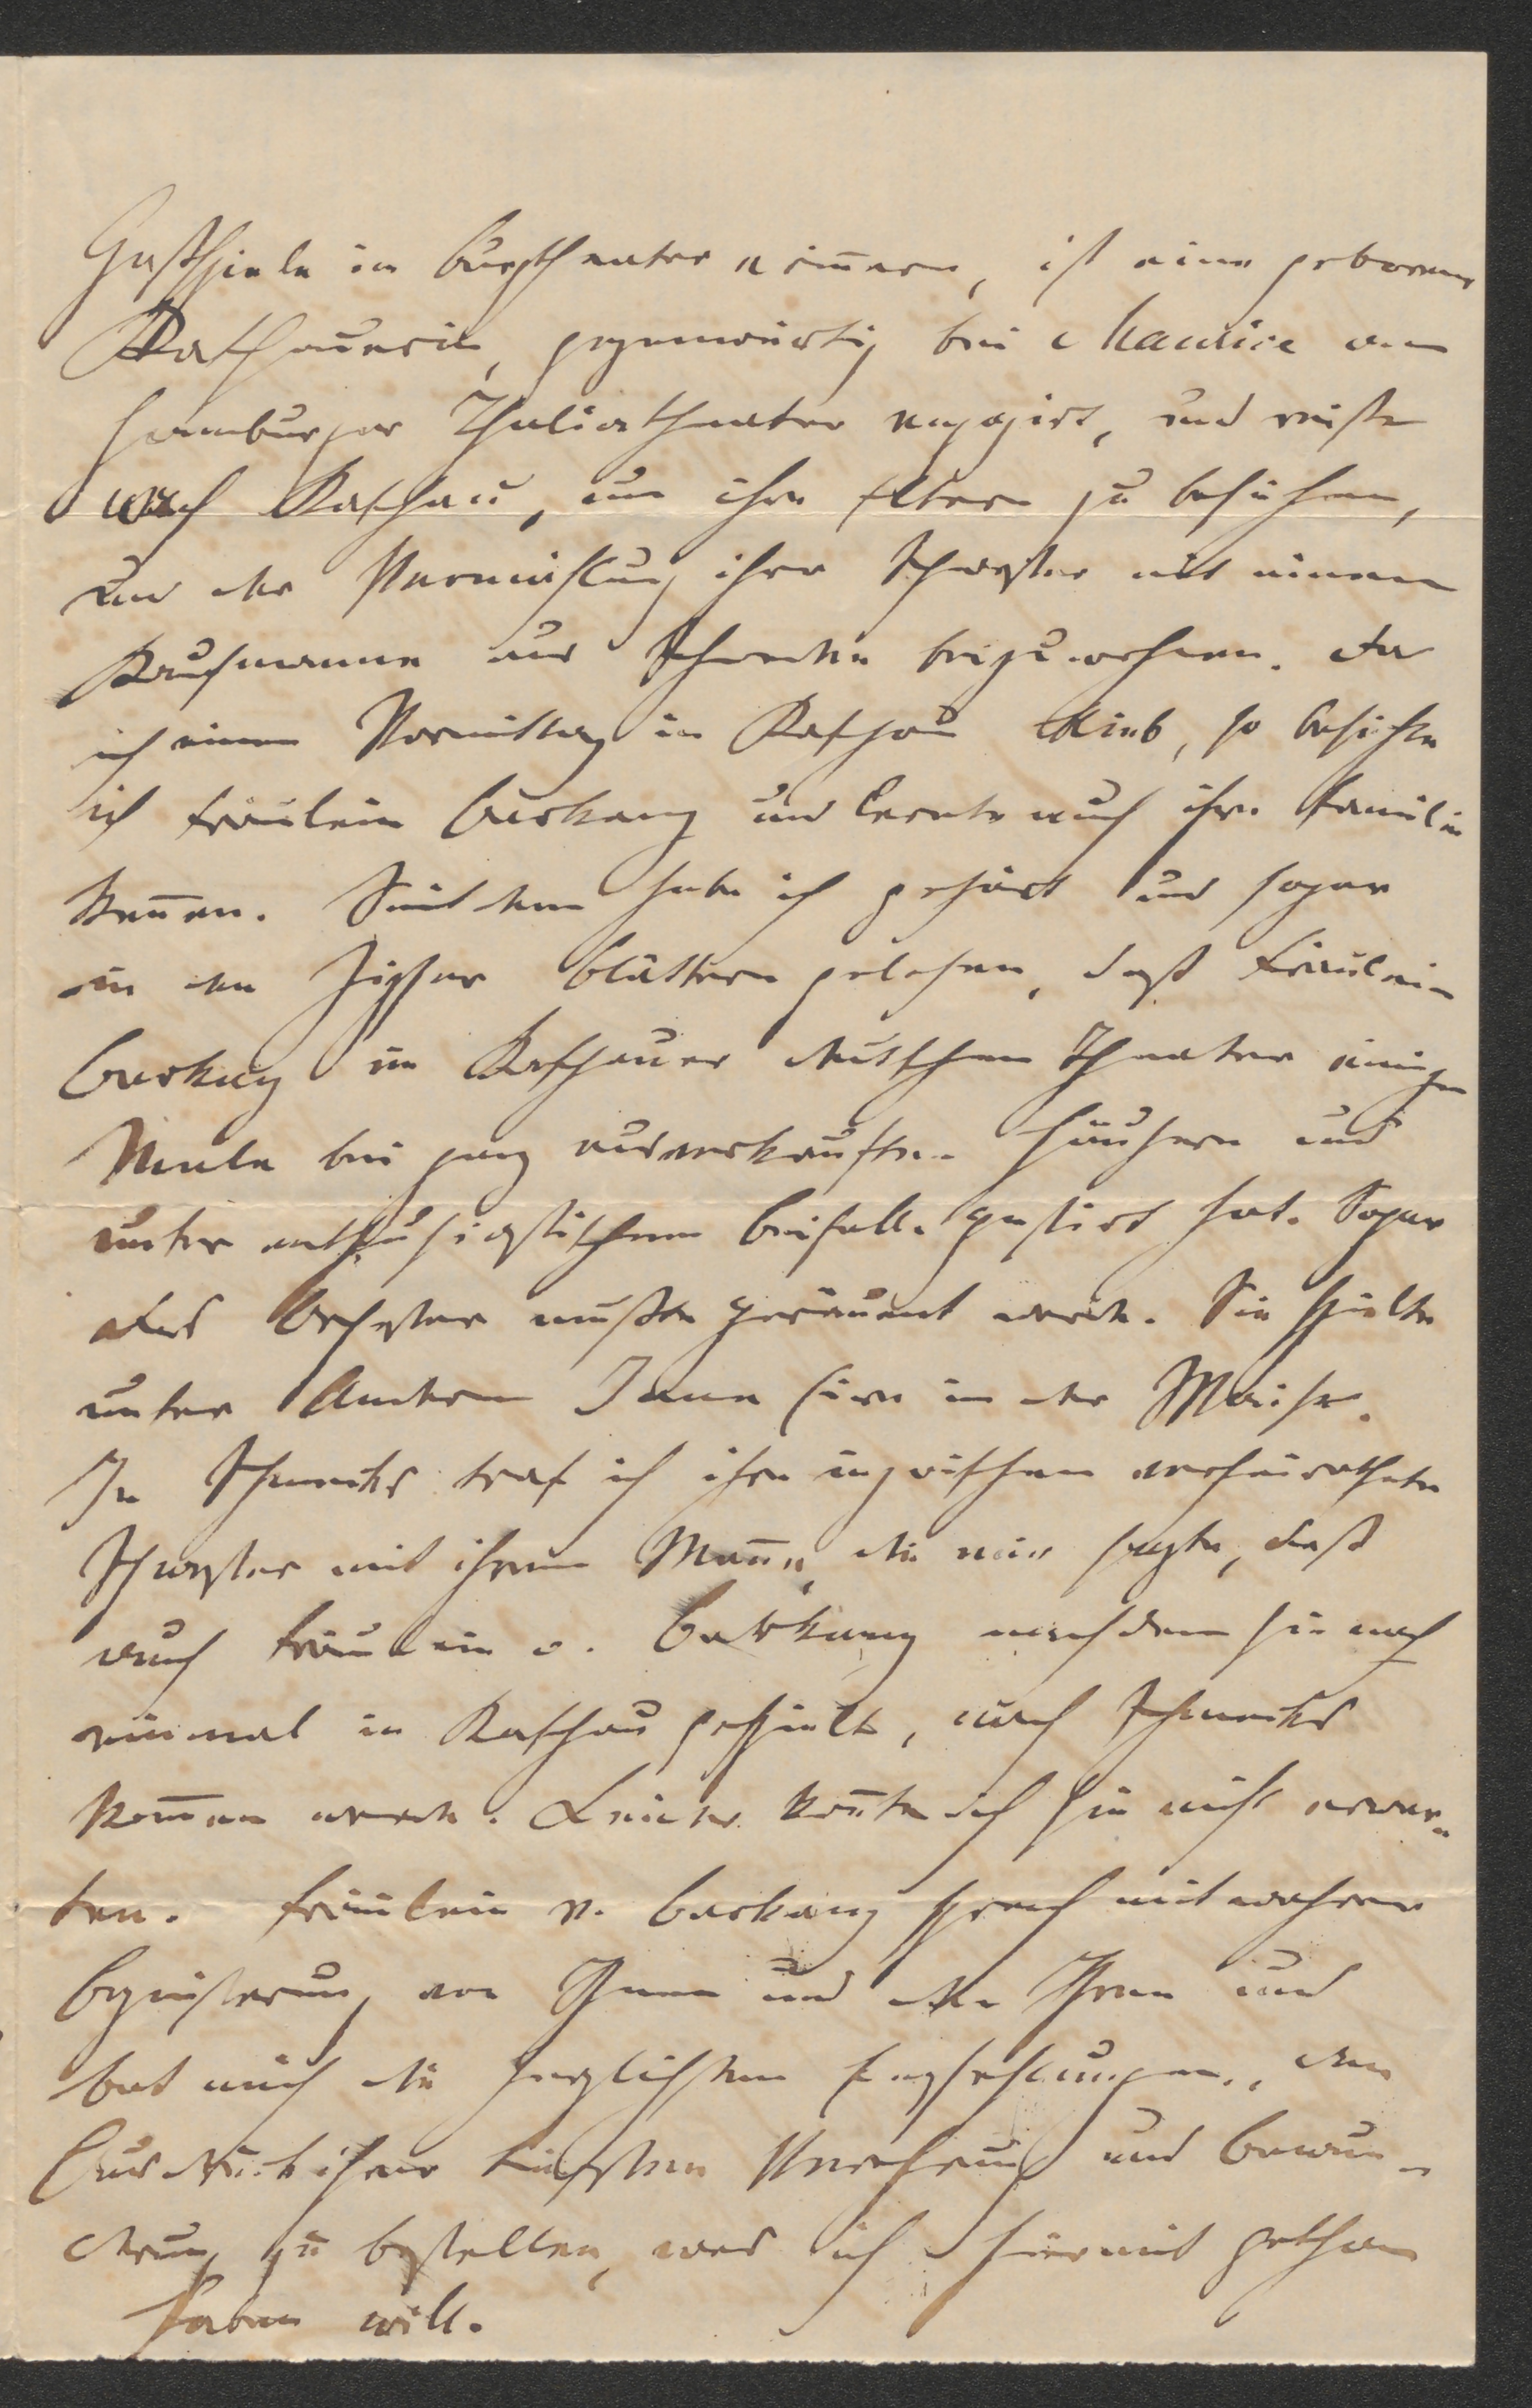 Gastspiele im Burgtheater erinnern, ist eine geborene
Kaschauerin, gegenwärtig bei Maurice am
Hamburger Thaliatheater engagirt, und reiste
nach Kaschau, um ihre Eltern zu besuchen,
und der Vermählung ihrer Schwester mit einem
Kaufmanne aus Schmecks beizuwohnen. Da
ich einen Vormittag in Kaschau blieb, so besuchte
ich Fräulein Barkany und lernte auch ihre Familie
kennen. Seitdem habe ich gehört und sogar
in den Zipser Blättern gelesen, daß Fräulein
Barkany im Kaschauer deutschen Theater einige
Male bei ganz ausverkauften Häusern und
unter enthusiastischem Beifalle gastirt hat. Sogar
das Orchester mußte geräumt werden. Sie spielte
unter Andern Jane Eire in der Waise.
In Schmecks traf ich ihre inzwischen verheirathete
Schwester mit ihrem Manne, die mir sagte, daß
auch Fräulein v. Barkany nachdem sie noch
einmal in Kaschau gespielt, nach Schmecks
kommen werde. Leider konnte ich sie nicht erwar-
ten. Fräulein v. Barkany sprach mit wahrer
Begeisterung von Ihnen und den Ihren und
bat mich die herzlichsten Empfehlungen, den
Ausdruck ihrer tiefsten Verehrung und Bewun-
derung zu bestellen, was ich hiermit gethan
haben will.